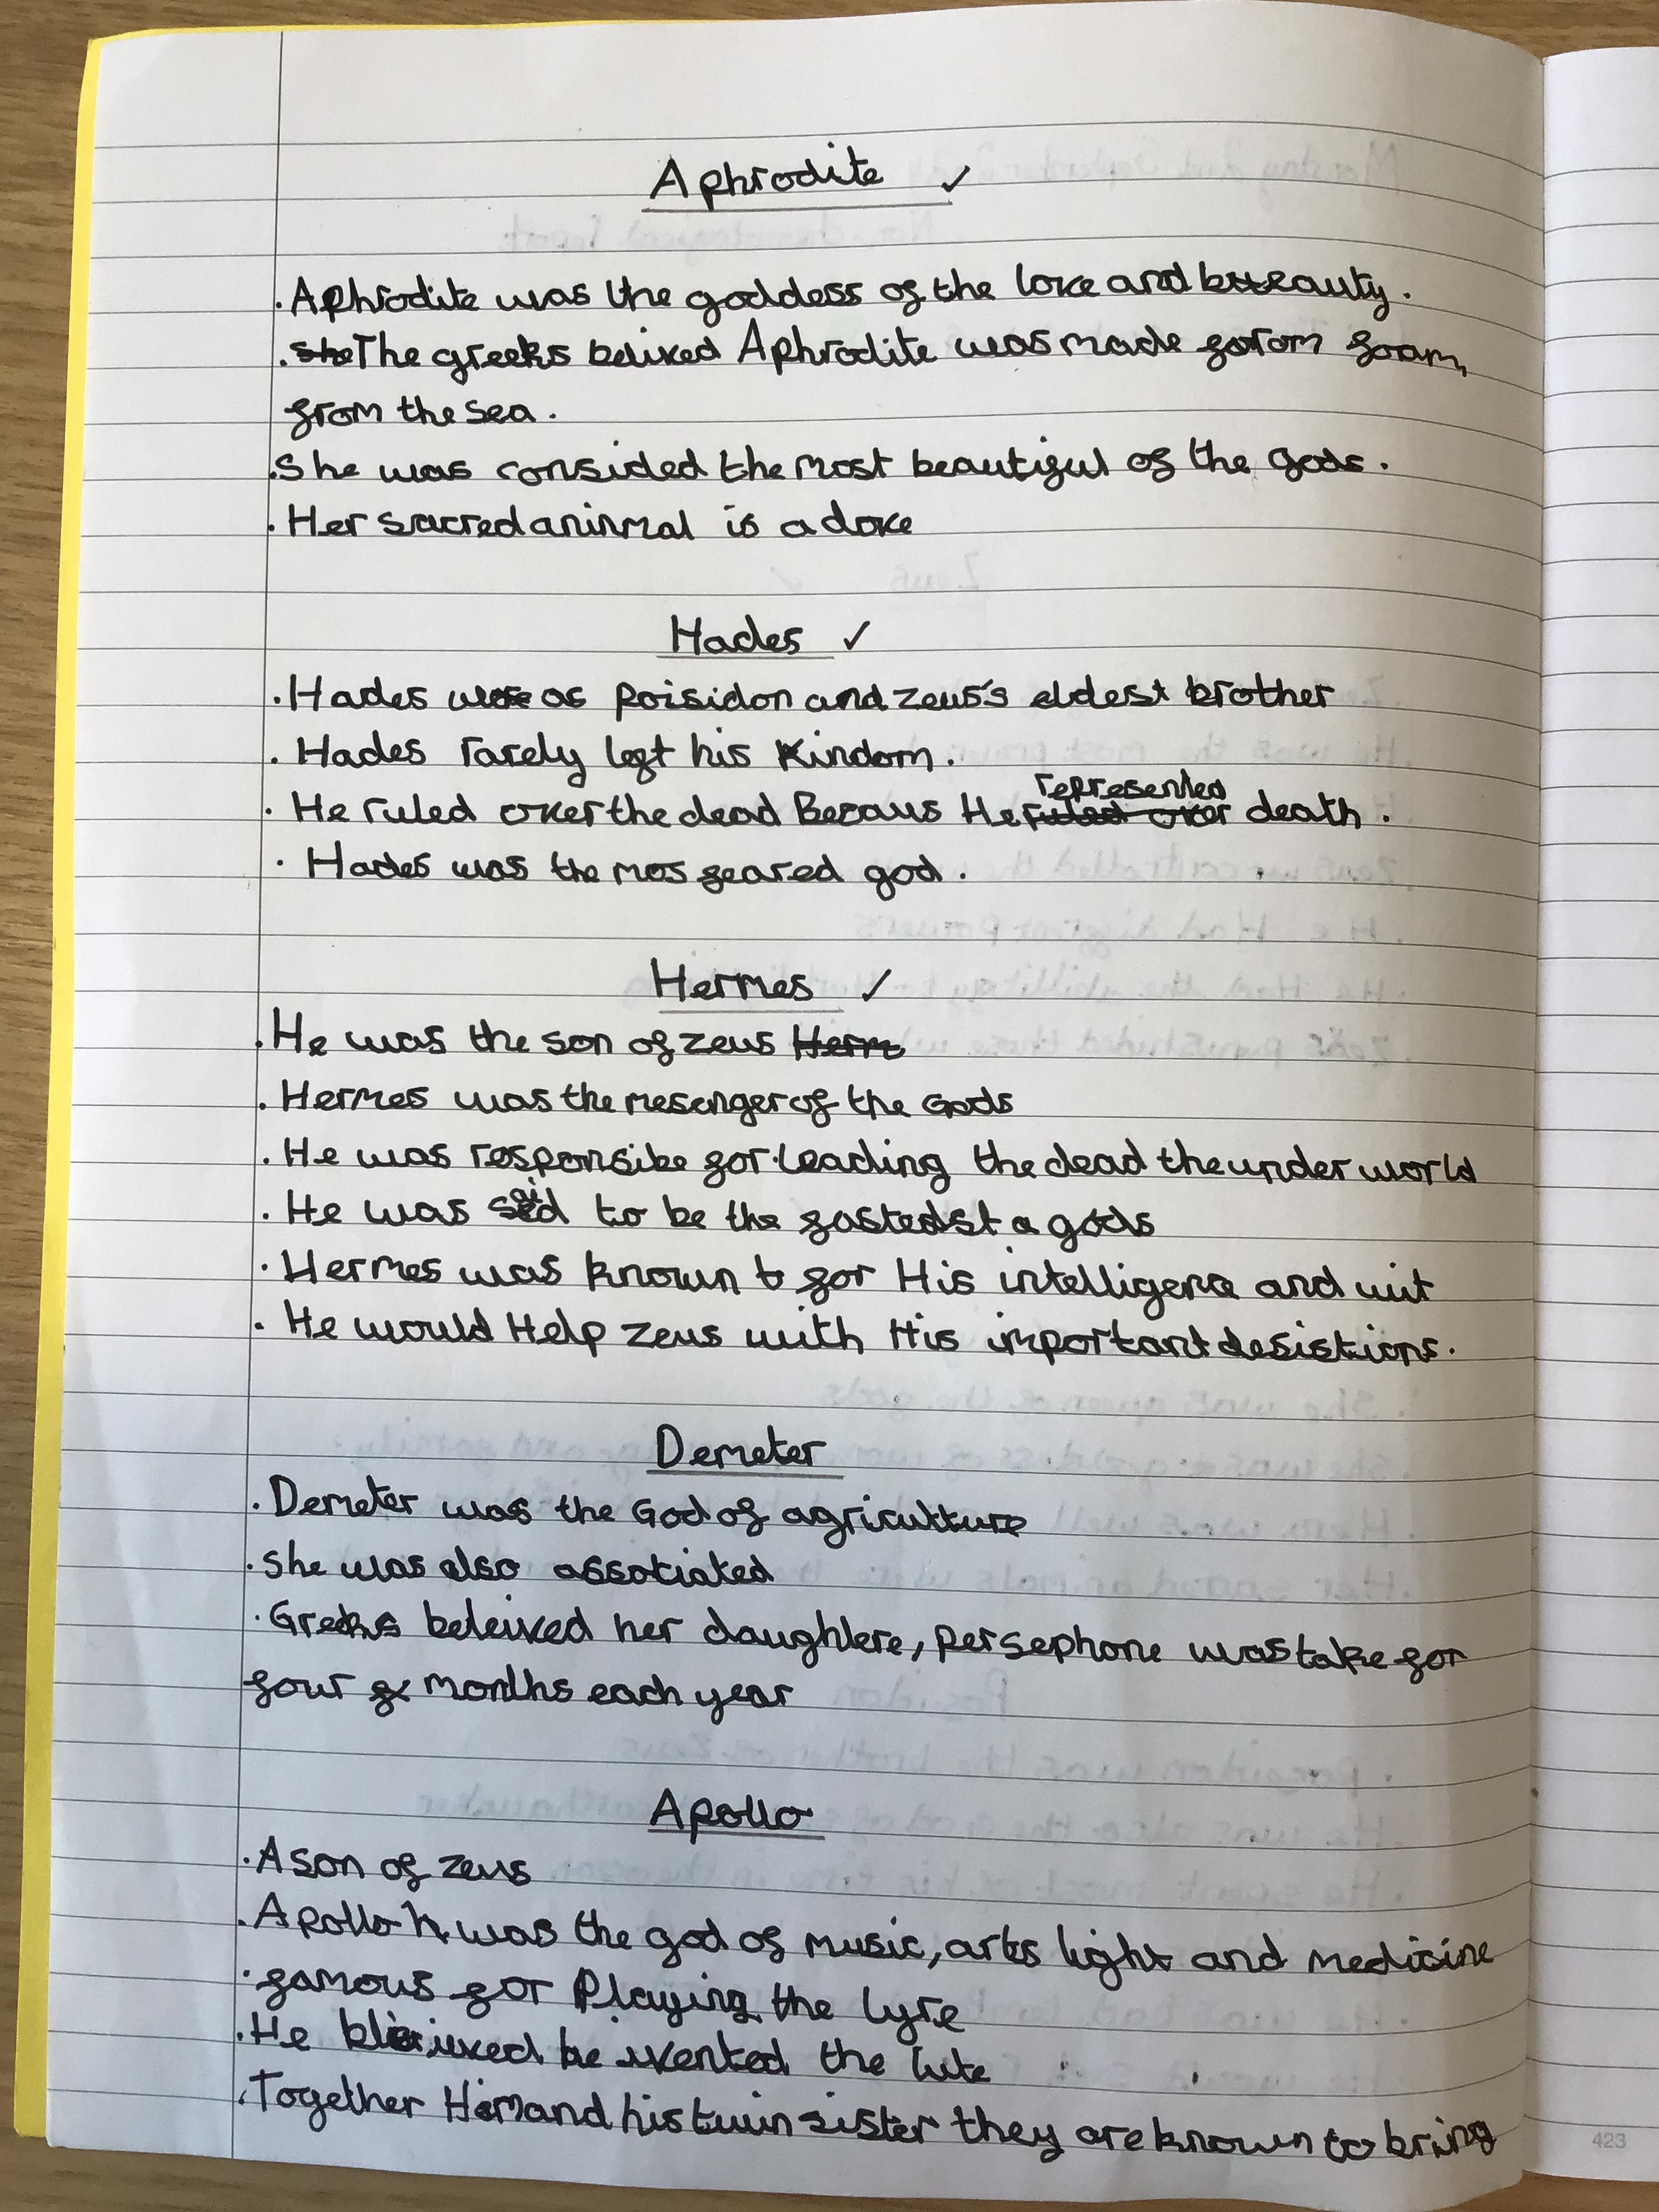 Aphrodite ✓
· Aphrodite was the goddess of the love and beauty.
· The greeks belived Aphrodite was made from foam,
from the sea.
· She was consided the most beautiful of the gods.
· Her sacred animal is a dove
Hades ✓
· Hades was Poisidon and zeus's eldest brother
· Hades rarely left his Kindom.
represented
· He ruled over the dead Becaus He ruled over death.
· Hades was the mos feared god.
Hermes ✓
· He was the son of zeus Herm
· Hermes was the mesenger of the Gods
· He was responsibe for leading the dead the under world
· He was said to be the gods
· Hermes was known for His intelligence and wit
· He would Help zeus with His important desistions.
Demeter
· Demeter was the God of agriculture
· She was also assotiated
· Greeks beleived her daughtere, persephone was take for
four months each year
Apollo
· A son of zeus
· Apollo was the god of music, arts light and medicine
· famous for Playing the lyre
· He be ivented the lute
· Together Him and his twin sister they are known to bring
423